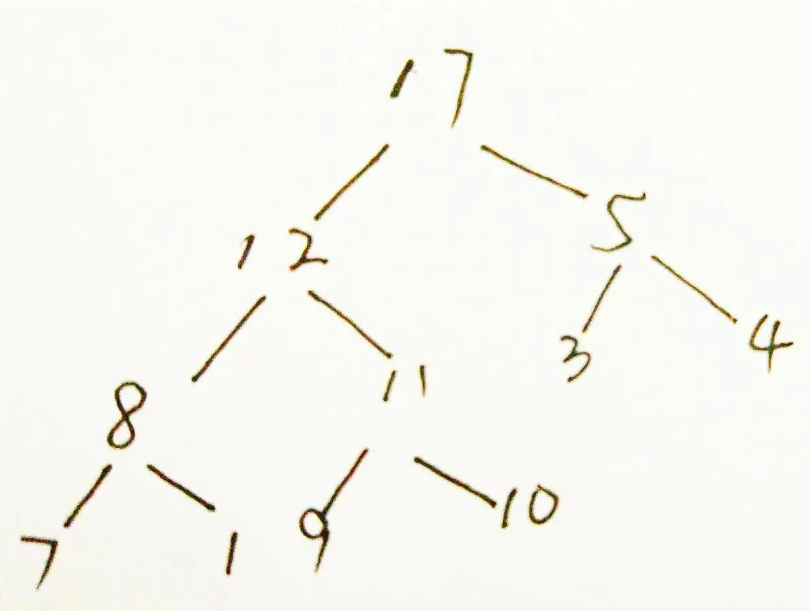 17
12 5
8 11 3 4
7 1 9 10